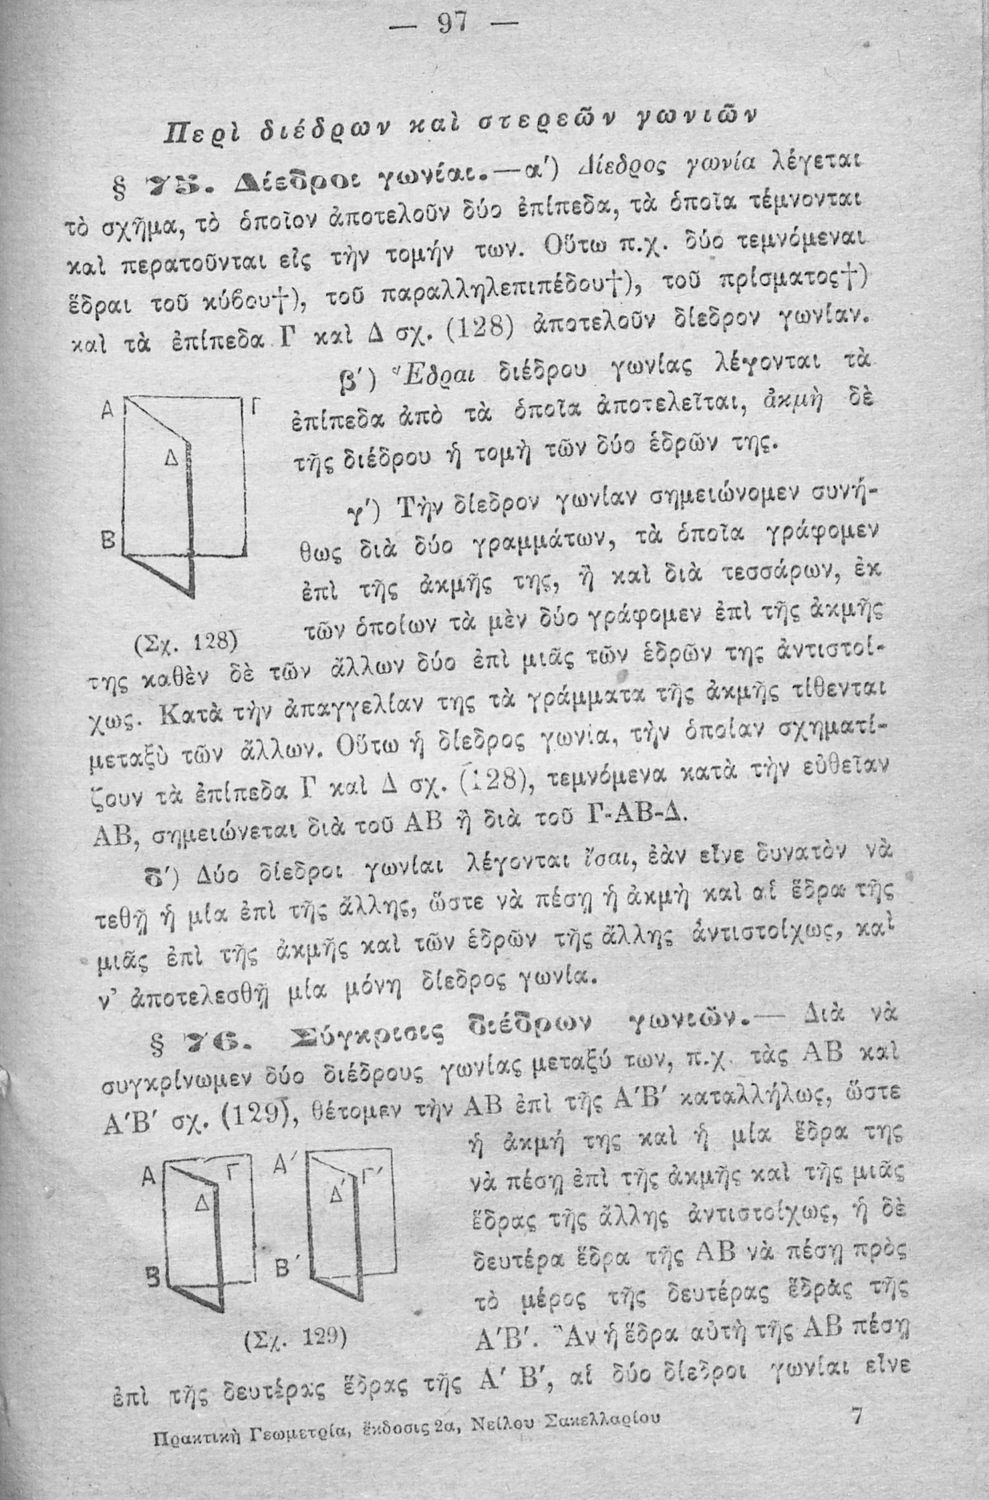 — 97 —
Περὶ διέδρων καὶ στερεῶν γωνιῶν
§ 75. Δίεδροι γωνίαι.—α') Δίεδρος γωνία λέγεται
τὸ σχῆμα, τὸ ὁποῖον ἀποτελοῦν δύο ἐπίπεδα, τὰ ὁποῖα τέμνονται
καὶ περατοῦνται εἰς τὴν τομήν των. Οὕτω π.χ. δύο τεμνόμεναι
ἕδραι τοῦ κύβου†), τοῦ παραλληλεπιπέδου†), τοῦ πρίσματος†)
καὶ τὰ ἐπίπεδα Γ καὶ Δ σχ. (128) ἀποτελοῦν δίεδρον γωνίαν.
β') Ἕδραι διέδρου γωνίας λέγονται τὰ
ἐπίπεδα ἀπὸ τὰ ὁποῖα ἀποτελεῖται, ἀκμὴ δὲ
τῆς διέδρου ἡ τομὴ τῶν δύο ἑδρῶν της.
γ') Τὴν δίεδρον γωνίαν σημειώνομεν συνή-
θως διὰ δύο γραμμάτων, τὰ ὁποῖα γράφομεν
ἐπὶ τῆς ἀκμῆς της, ἢ καὶ διὰ τεσσάρων, ἐκ
τῶν ὁποίων τὰ μὲν δύο γράφομεν ἐπὶ τῆς ἀκμῆς
Α Γ
Δ
Β
(Σχ. 128)
της καθὲν δὲ τῶν ἄλλων δύο ἐπὶ μιᾶς τῶν ἑδρῶν της ἀντιστοί-
χως. Κατὰ τὴν ἀπαγγελίαν της τὰ γράμματα τῆς ἀκμῆς τίθενται
μεταξὺ τῶν ἄλλων. Οὕτω ἡ δίεδρος γωνία, τὴν ὁποίαν σχηματί-
ζουν τὰ ἐπίπεδα Γ καὶ Δ σχ. (128), τεμνόμενα κατὰ τὴν εὐθεῖαν
ΑΒ, σημειώνεται διὰ τοῦ ΑΒ ἢ διὰ τοῦ Γ-ΑΒ-Δ.
δ') Δύο δίεδροι γωνίαι λέγονται ἴσαι, ἐὰν εἶνε δυνατὸν νὰ
τεθῇ ἡ μία ἐπὶ τῆς ἄλλης, ὥστε νὰ πέσῃ ἡ ἀκμὴ καὶ αἱ ἕδραι τῆς
μιᾶς ἐπὶ τῆς ἀκμῆς καὶ τῶν ἑδρῶν τῆς ἄλλης ἀντιστοίχως, καὶ
ν' ἀποτελεσθῇ μία μόνη δίεδρος γωνία.
§ 76. Σύγκρισις διέδρων γωνιῶν.— Διὰ νὰ
συγκρίνωμεν δύο διέδρους γωνίας μεταξύ των, π.χ. τὰς ΑΒ καὶ
Α'Β' σχ. (129), θέτομεν τὴν ΑΒ ἐπὶ τῆς Α'Β' καταλλήλως, ὥστε
ἡ ἀκμή της καὶ ἡ μία ἕδρα της
νὰ πέσῃ ἐπὶ τῆς ἀκμῆς καὶ τῆς μιᾶς
ἕδρας τῆς ἄλλης ἀντιστοίχως, ἡ δὲ
δευτέρα ἕδρα τῆς ΑΒ νὰ πέσῃ πρὸς
τὸ μέρος τῆς δευτέρας ἕδρας τῆς
Α'Β'. Ἂν ἡ ἕδρα αὐτὴ τῆς ΑΒ πέσῃ
Α Γ Α' Γ'
Δ Δ'
Β Β'
(Σχ. 129)
ἐπὶ τῆς δευτέρας ἕδρας τῆς Α' Β', αἱ δύο δίεδροι γωνίαι εἶνε
Πρακτικὴ Γεωμετρία, ἔκδοσις 2α, Νείλου Σακελλαρίου 7